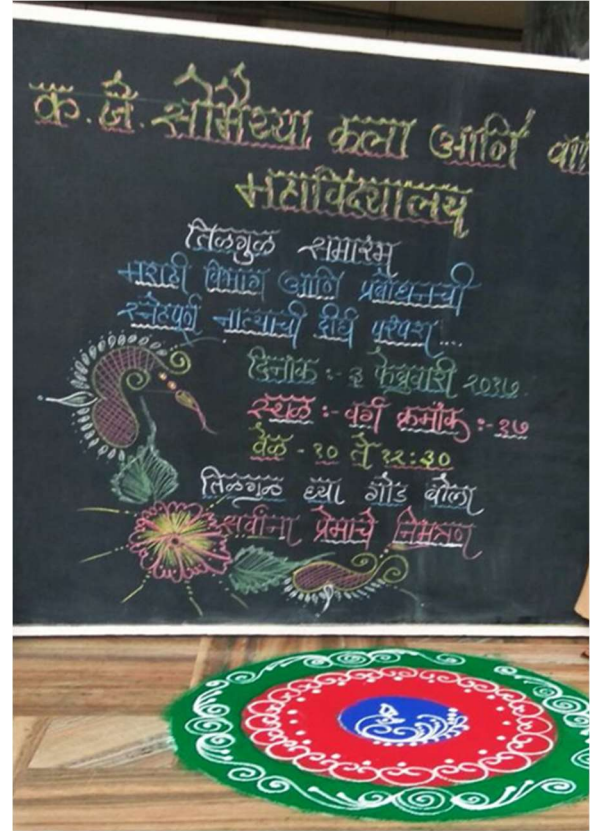 क. जे. सोमैय्या कला आणि वा
महाविद्यालय
तिळगुळ समारंभ
मराठी विभाग आणि प्रबोधनची
स्नेहपूर्ण नात्याची दीर्घ परंपरा...
दिनांक :- ३ फेब्रुवारी २०१७.
स्थळ :- वर्ग क्रमांक :- १७
वेळ - १० ते १२:३०
तिळगुळ घ्या गोड बोला
सर्वांना प्रेमाचे निमंत्रण